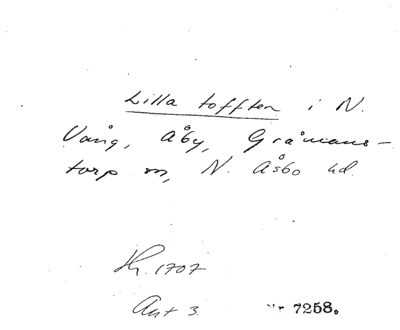 Lilla tofften i N.
Vång, Åby, Gråmans-
torp sn, N. Åsbo hd.
Hr. 1707
Ant 3. Nr 7258.